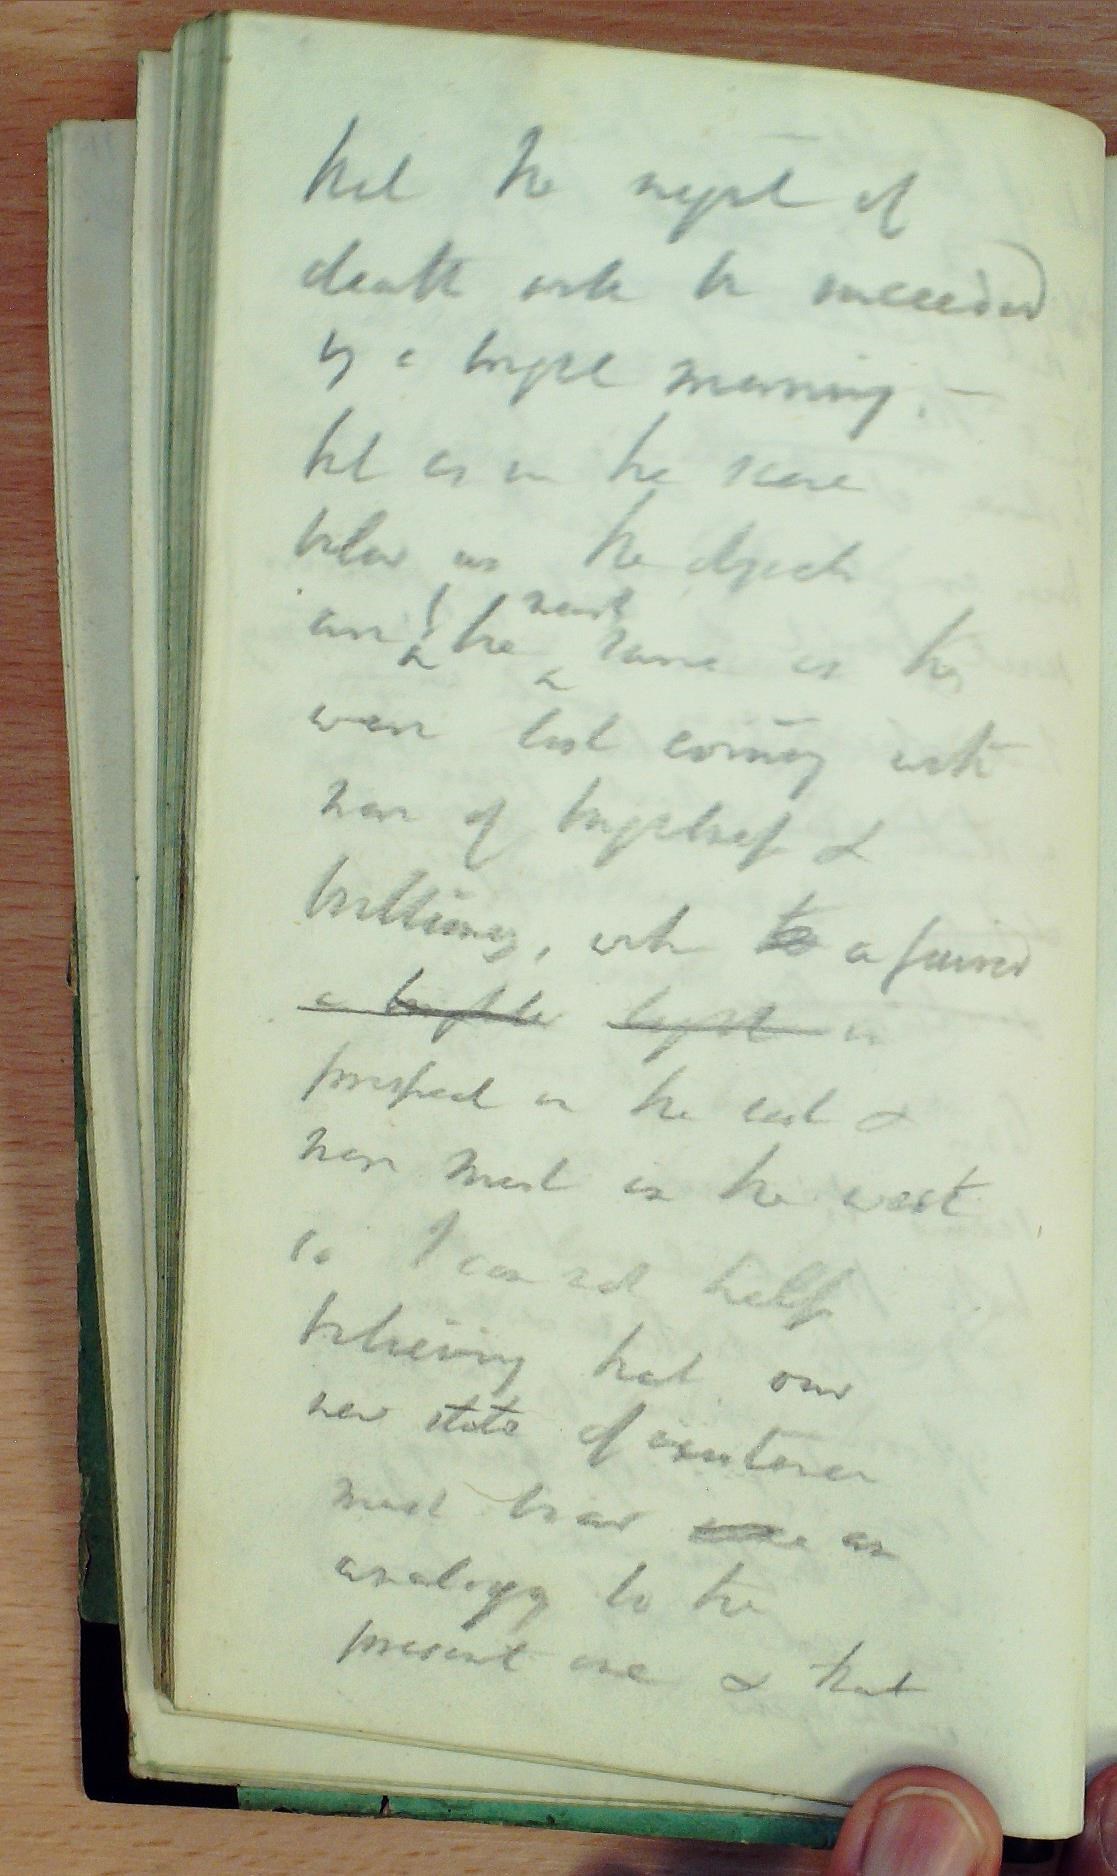 that the night of
death will be succeeded
by a bright morning. –
that as in the scene
below us the objects
are the nearly same as they
were last evening with
more of brightness &
brilliancy, with to a fairer
a brighter light in
prospect in the east &
more mist in the west
so I can not help
believing that our
new state of existence
must bear an
analogy to the
present one & that